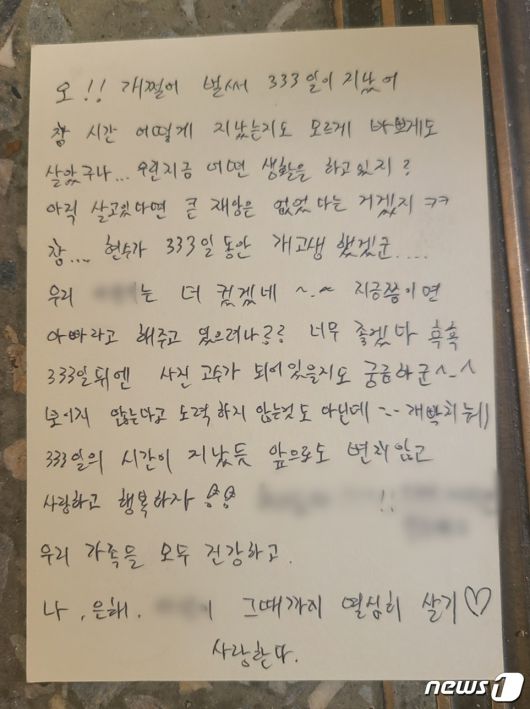 오!! 개쩔어 벌써 333일이 지났어
참 시간 어떻게 지났는지도 모르게 바쁘게도
살았구나... 우린지금 어떤 생활을 하고있지?
아직 살고있다면 큰 재앙은 없었다는 거겠지 ㅋㅋ
참... 현수가 333일동안 개고생 했겠군....
우리 는 더 컸겠네 ~.~ 지금쯤이면
아빠라고 해주고 있으려나 너무 좋겠다 흑흑
333일뒤엔 사진 고수가 되어있을지도 궁금하군 ^-^
보이지 않는다고 노력하지 않는것도 아닌데 --
333일의 시간이 지났듯 앞으로도 변치않고
사랑하고 행복하자 !!
우리 가족들 모두 건강하고.
나, 은해. 그때까지 열심히 살기♡
사랑한다.
news1